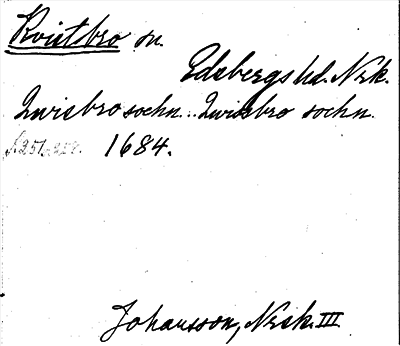 Kvistbro sn.
Edsbergs hd. Nrk.
Qwisbro sochn.. Qwisbro sochn.
f. 251, 252. 1684.
Johansson, Nrsk. III